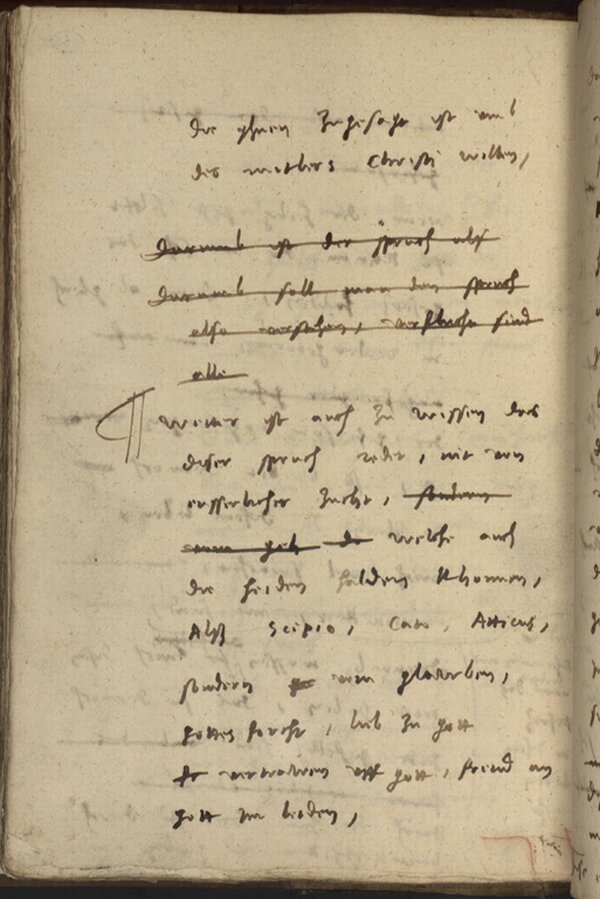 die yhnen zugesagt ist umb
des mitlers Christi willen,
darumb ist der spruch also
darumb soll man den spruch
also verstehen, verflucht sind
alle
¶ Weiter ist auch zu wissen das
diser spruch redet, nit von
eusserlicher zucht, sondern
welche auch
die heiden halden khonnen,
Alß Scipio, Cato, Atticus,
sondern vom glawben,
gottes forcht, lieb zu gott
vertrawen uff gott, freud an
gott im leiden,